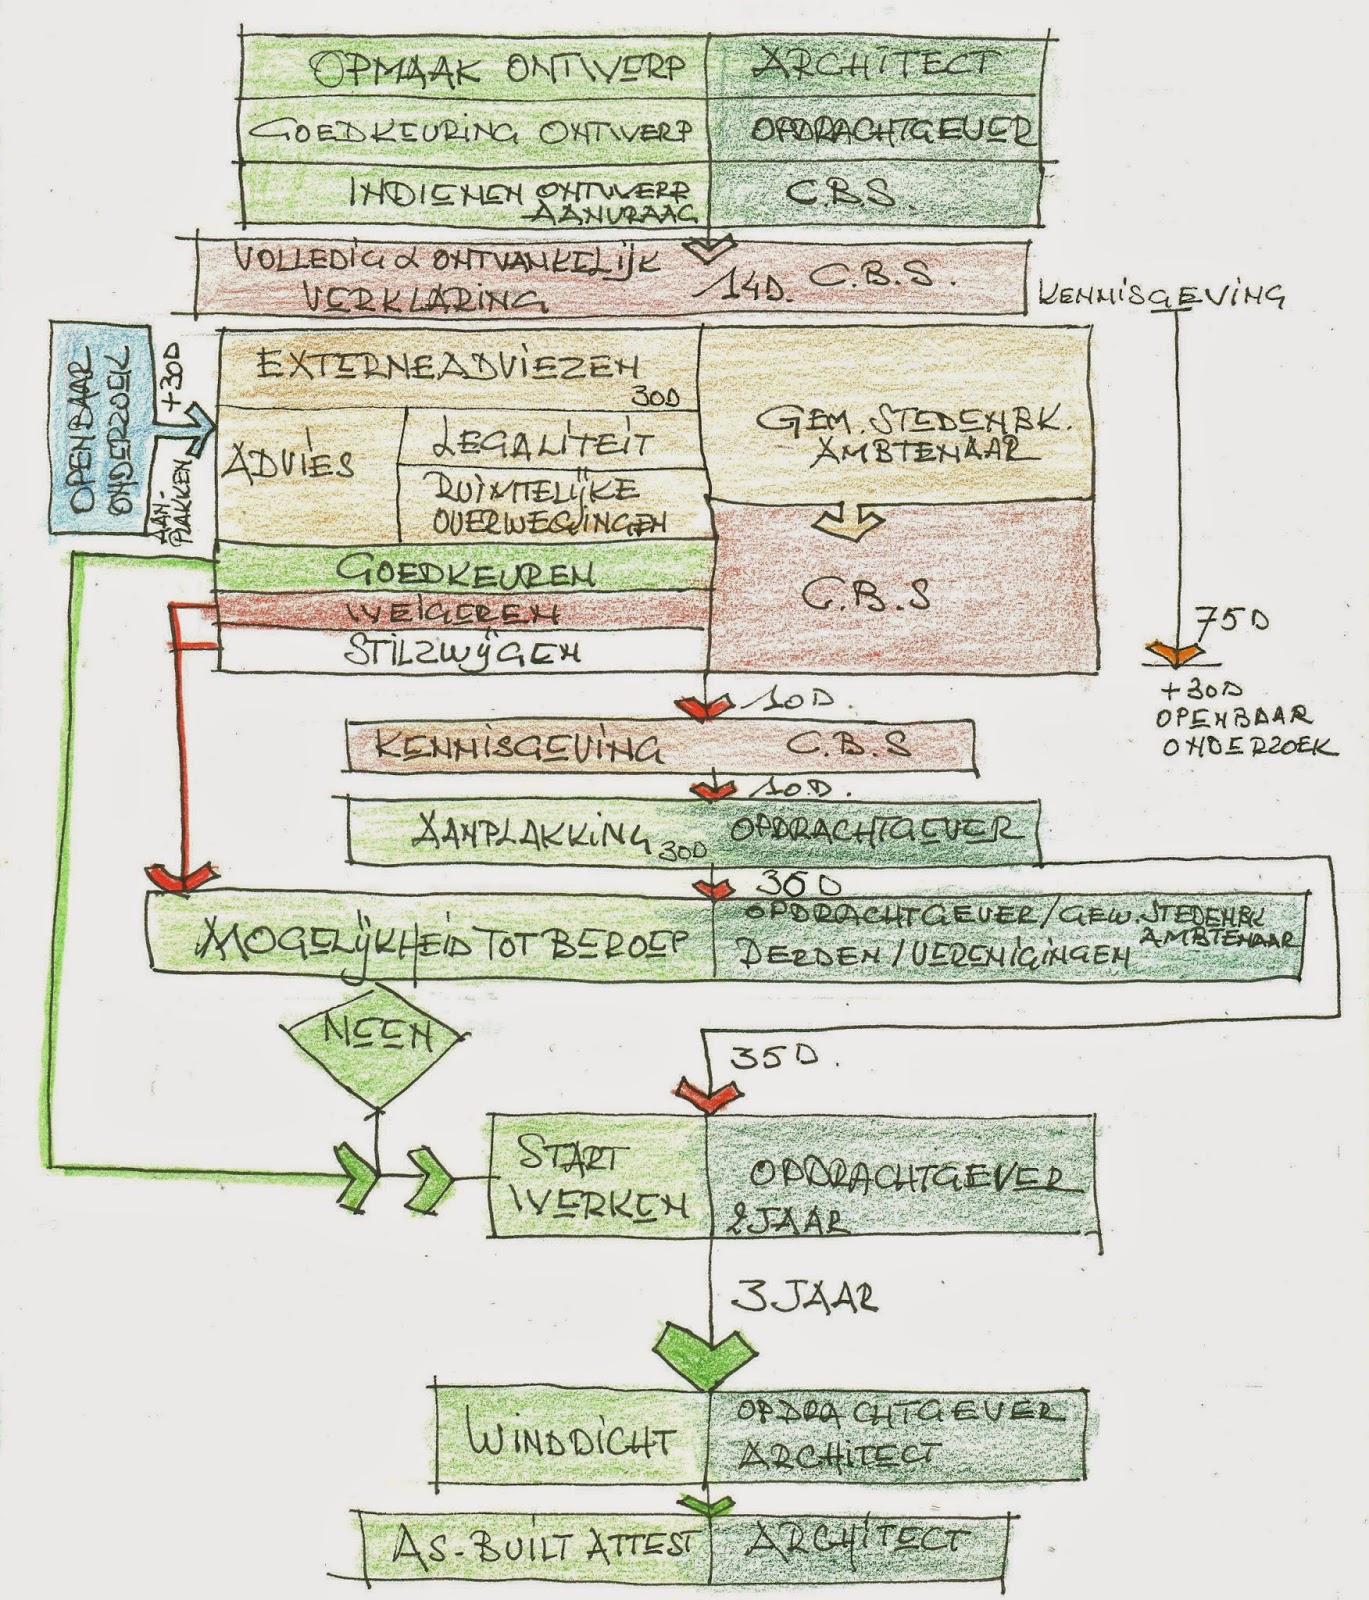 OPMAAK ONTWERP ARCHITECT
GOEDKEURING ONTWERP OPDRACHTGEVER
INDIENEN ONTWERP C.B.S.
AANVRAAG
VOLLEDIG & ONTVANKELIJK
VERKLARING 14D. C.B.S.
KENNISGEVING
OPENBAAR
ONDERZOEK
+30D
AAN-
PLAKKEN
EXTERNE ADVIEZEN
30D
ADVIES
LEGALITEIT
RUIMTELIJKE
OVERWEGINGEN
GEM. STEDENBK.
AMBTENAAR
GOEDKEUREN
WEIGEREN
STILZWIJGEN
C.B.S
75D
+30D
OPENBAAR
ONDERZOEK
10D.
KENNISGEVING C.B.S
10D.
AANPLAKKING 30D OPDRACHTGEVER
36D
MOGELIJKHEID TOT BEROEP
OPDRACHTGEVER/GEW. STEDENBK
AMBTENAAR
DERDEN/VERENIGINGEN
NEEN
35D.
START
WERKEN
OPDRACHTGEVER
2JAAR
3 JAAR
WINDDICHT
OPDRACHTGEVER
ARCHITECT
AS-BUILT ATTEST ARCHITECT